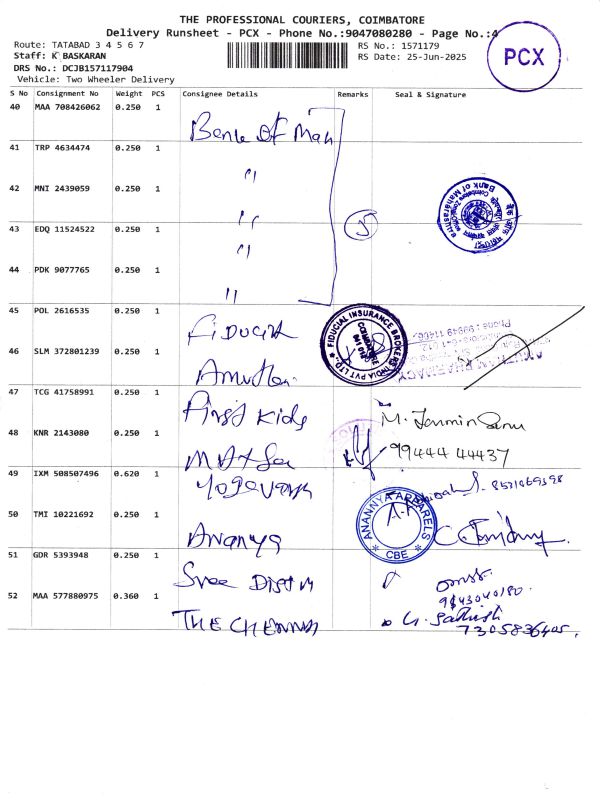 THE PROFESSIONAL COURIERS, COIMBATORE
Delivery Runsheet - PCX - Phone No.:9047080280 - Page No.:4
Route: TATABAD 3 4 5 6 7
RS No.: 1571179
Staff: K BASKARAN
RS Date: 25-Jun-2025
DRS No.: DCJB157117904
Vehicle: Two Wheeler Delivery
PCX
S No Consignment No Weight PCS Consignee Details Remarks Seal & Signature
40 MAA 708426062 0.250 1
Bank Of Mah
41 TRP 4634474 0.250 1
"
42 MNI 2439059 0.250 1
"
5
Bank of Maharashtra
43 EDQ 11524522 0.250 1
"
44 PDK 9077765 0.250 1
"
45 POL 2616535 0.250 1
Fiducia
FIDUCIAL INSURANCE BROKERS INDIA PVT LTD.
COIMBATORE
46 SLM 372801239 0.250 1
PHARMACY
47 TCG 41758991 0.250 1
First Kids
48 KNR 2143080 0.250 1
99444 44437
49 IXM 508507496 0.620 1
50 TMI 10221692 0.250 1
Ananya
ANANNYA APPARELS
CBE
51 GDR 5393948 0.250 1
Sree
52 MAA 577880975 0.360 1
9843040180
THE CHENNAI
G. Sathish
7305836405